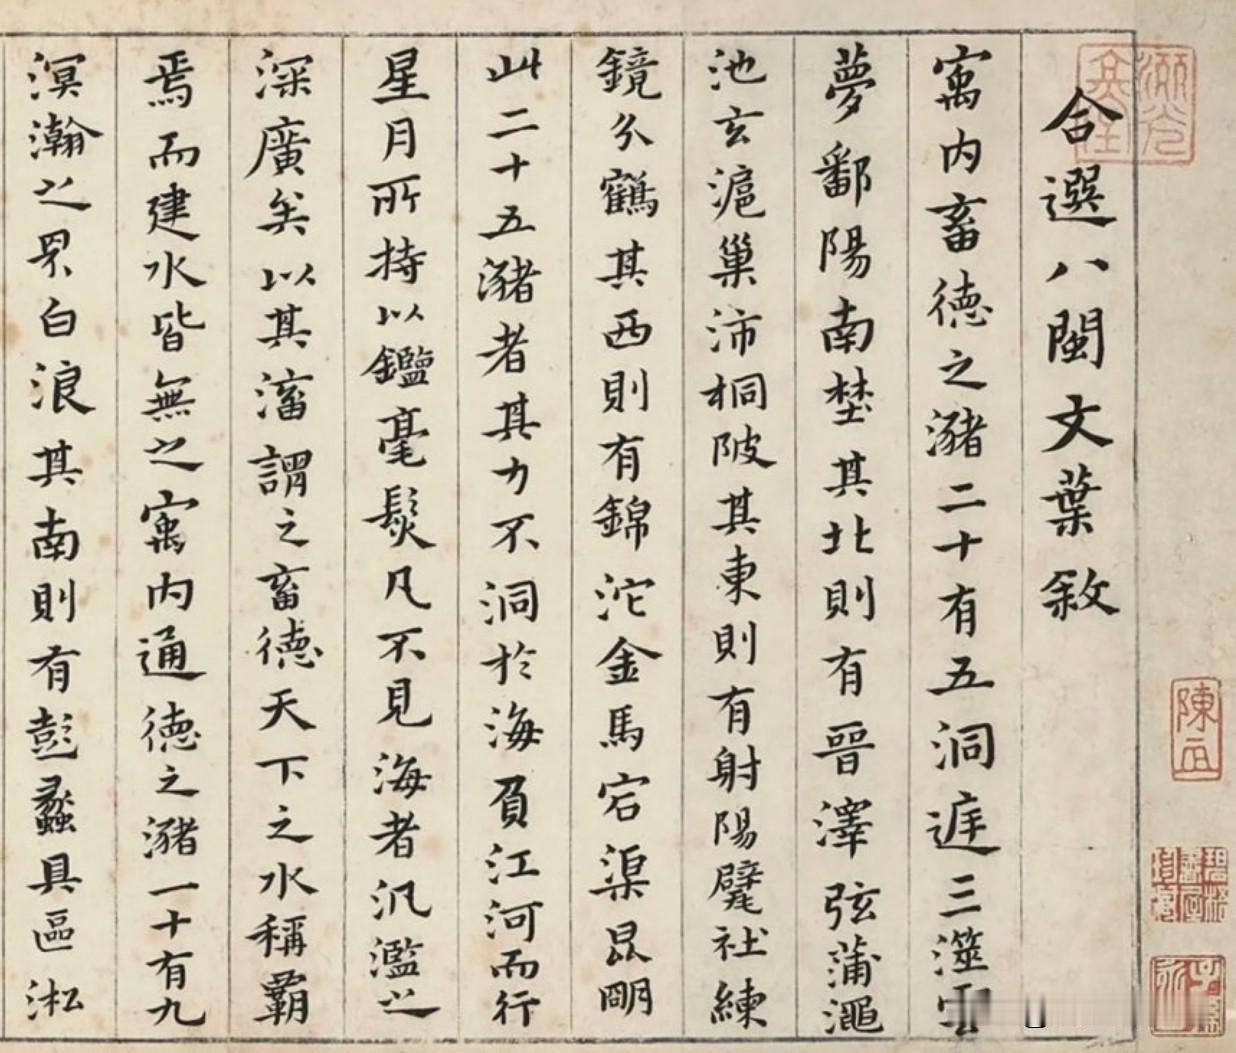 合選八閩文葉敘
寓内畜德之瀦二十有五洞遅三澨雲
夢鄱陽南埜其北則有晉澤弦蒲澠
池玄滬巢沛桐陂其東則有射陽甓社練
鏡分鶴其西則有錦沱金馬宕渠昆明
此二十五瀦者其力不洞於海負江河而行
星月所持以鑑毫髮凡不見海者汎濫之
深廣矣以其滀謂之畜德天下之水稱霸
焉而建水皆無之寓内通德之瀦一十有九
溟瀚之界白浪其南則有彭蠡具區淞
陳